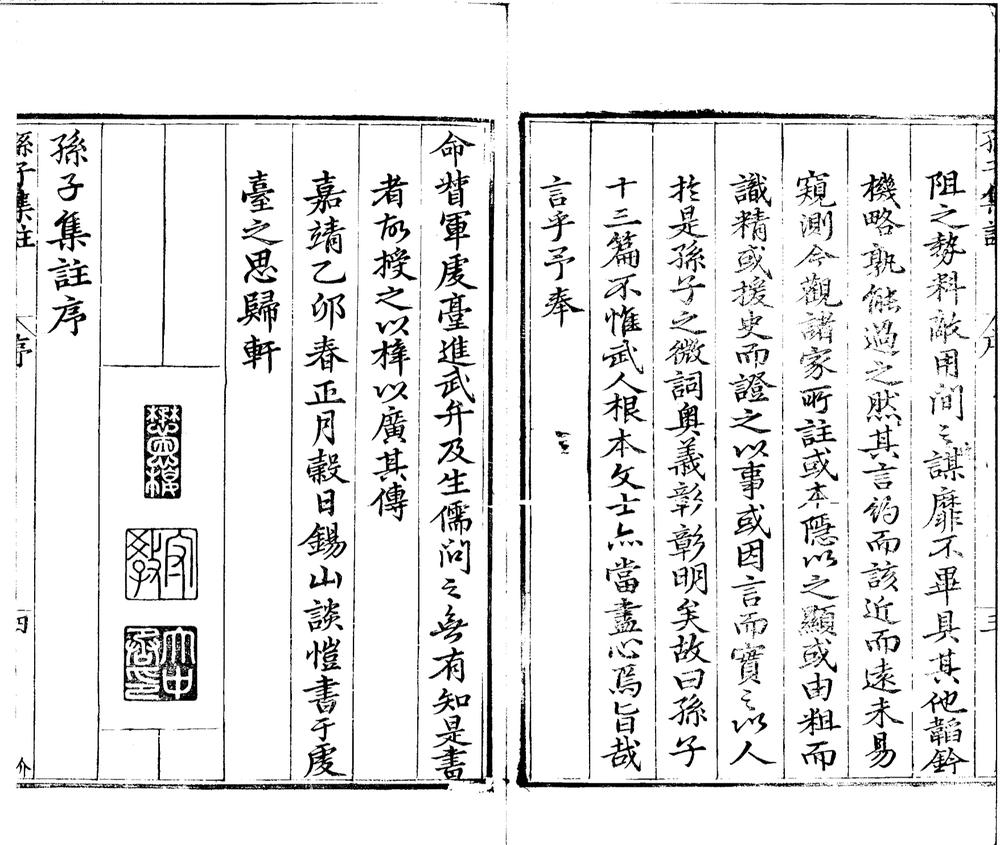 阻之勢料敵用間之謀靡不畢具其他韜鈐
機略孰能過之然其言約而該近而遠未易
窺測今觀諸家所註或本隱以之顯或由粗而
識精或援史而證之以事或因言而實之以人
於是孫子之微詞奧義彰彰明矣故曰孫子
十三篇不惟武人根本文士亦當盡心焉旨哉
言乎予奉
命督軍虔臺進武弁及生儒问之無有知是書
者故授之以梓以廣其傳
嘉靖乙卯春正月穀日錫山談愷書于虔
臺之思歸軒
孫子集註序
孫子集註
序
四